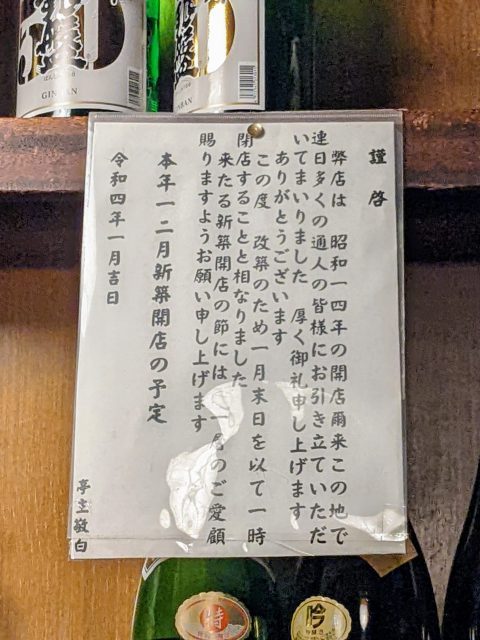 謹啓
弊店は 昭和一四年の開店爾来この地で
連日多くの通人の皆様にお引き立ていただ
いてまいりました 厚く御礼申し上げます
ありがとうございます
この度 改築のため一月末日を以て一時
閉店することと相なりました
来たる新築開店の節には 一層のご愛顧
賜りますようお願い申し上げます
本年一二月新築開店の予定
令和四年一月吉日
亭主敬白
GINBAN
GINBAN
特
吟